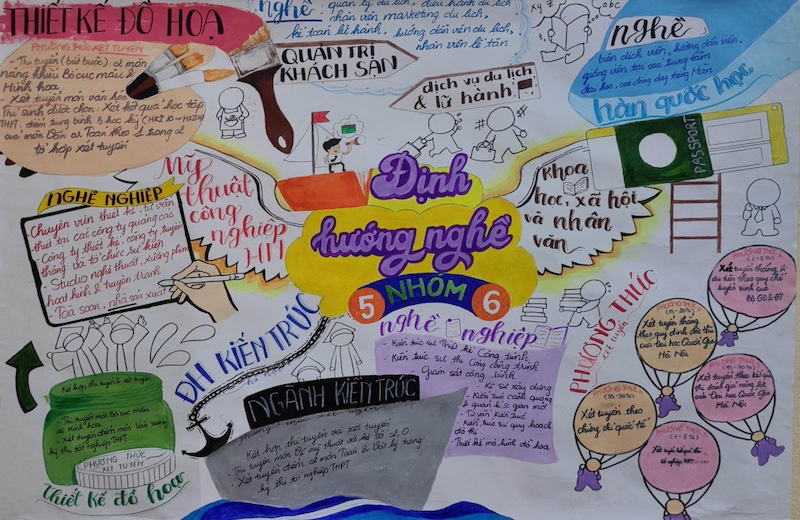 THIẾT KẾ ĐỒ HOẠ
PHƯƠNG THỨC XÉT TUYỂN
- Thi tuyển (bắt buộc) 2 môn
năng khiếu Bố cục màu &
Hình hoạ
- Xét tuyển môn văn hoá
Thí sinh được chọn: Xét kết quả học tập
THPT, điểm trung bình 5 học kỳ
của môn Văn or Toán theo 1 trong 2
tổ hợp xét tuyển
nghề
quản lý du lịch, điều hành du lịch
nhân viên marketing du lịch,
kế toán lữ hành, hướng dẫn viên du lịch,
nhân viên lễ tân
QUẢN TRỊ
KHÁCH SẠN
dịch vụ du lịch
& lữ hành
xyz
abc
nghề
biên dịch viên, hướng dẫn viên,
giảng viên tại các trung tâm
đại học, cao đẳng dạy tiếng Hàn
hàn quốc học
PASSPORT
Mỹ
thuật
công
nghiệp
HN
Định
hướng nghề
5 NHÓM 6
Khoa
học, xã hội
và nhân
văn
NGHỀ NGHIỆP
Chuyên viên thiết kế, tư vấn
thiết tại các công ty quảng cáo
- Công ty thiết kế, công ty truyền
thông và tổ chức sự kiện
- Studio nghệ thuật, xưởng phim
hoạt hình & truyện tranh
- Toà soạn, nhà sản xuất
ĐH KIẾN TRÚC
NGÀNH KIẾN TRÚC
Kết hợp thi tuyển và xét tuyển
- Thi tuyển môn Vẽ mỹ thuật
- Xét tuyển điểm 2 môn Toán & Vật lý trong
kỳ thi tốt nghiệp THPT
nghề nghiệp
Kiến trúc sư Thiết kế Công trình
Kiến trúc sư thi công công trình
Giám sát công trình
- Kĩ sư xây dựng
- Kiến trúc cảnh quan
- Tư vấn kiến trúc
Kiến trúc sư quy hoạch
đô thị
- Thiết kế mô hình đồ hoạ
Kết hợp thi tuyển & xét tuyển
- Thi tuyển môn Bố cục màu
và Hình hoạ
- Xét tuyển điểm môn Văn trong
kỳ thi tốt nghiệp THPT
PHƯƠNG THỨC
XÉT TUYỂN
Thiết kế đồ hoạ
PHƯƠNG THỨC
xét tuyển
PHƯƠNG THỨC 1
Xét tuyển thẳng &
ưu tiên theo quy chế
tuyển sinh của
Bộ GD&ĐT
PHƯƠNG THỨC
Xét tuyển thẳng
theo quy định đặc thù
của Đại học Quốc Gia
Hà Nội
PHƯƠNG THỨC
Xét tuyển theo kết quả
thi đánh giá năng lực
của Đại học Quốc Gia
Hà Nội
PHƯƠNG THỨC
Xét tuyển theo
chứng chỉ quốc tế
PHƯƠNG THỨC 5
Xét tuyển kết quả thi
tốt nghiệp THPT